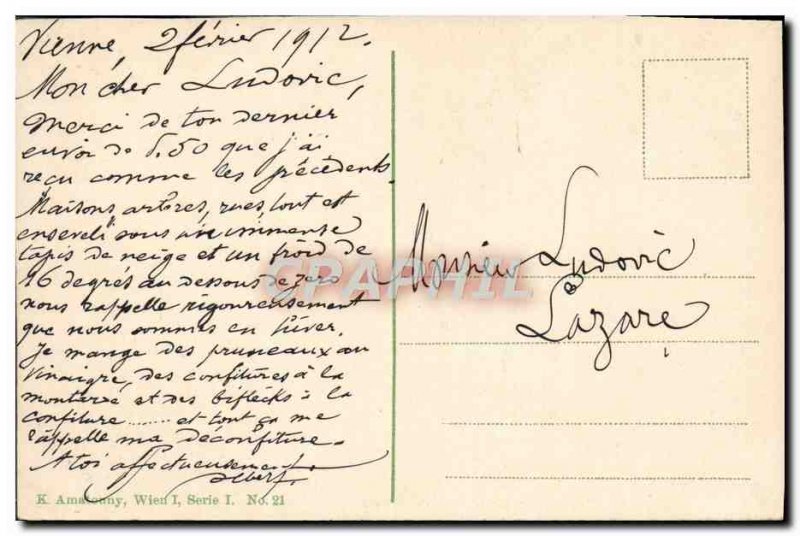 Vienne, 2 février 1912.
Mon cher Ludovic,
Merci de ton dernier
envoi de 5.50 que j'ai
reçu comme les précédents.
Maisons, arbres, rues, tout est
enseveli sous un immense
tapis de neige et un froid de
16 degrés au dessous de zero
nous rappelle rigoureusement
que nous sommes en hiver.
Je mange des pruneaux au
vinaigre, des confitures à la
moutarde et des biftecks à la
confiture ....... et tout ça me
rappelle ma déconfiture.
A toi affectueusement
Albert
Monsieur Ludovic
Lazare
CPAPHIL
K. Amatouny, Wien I, Serie I. No. 21